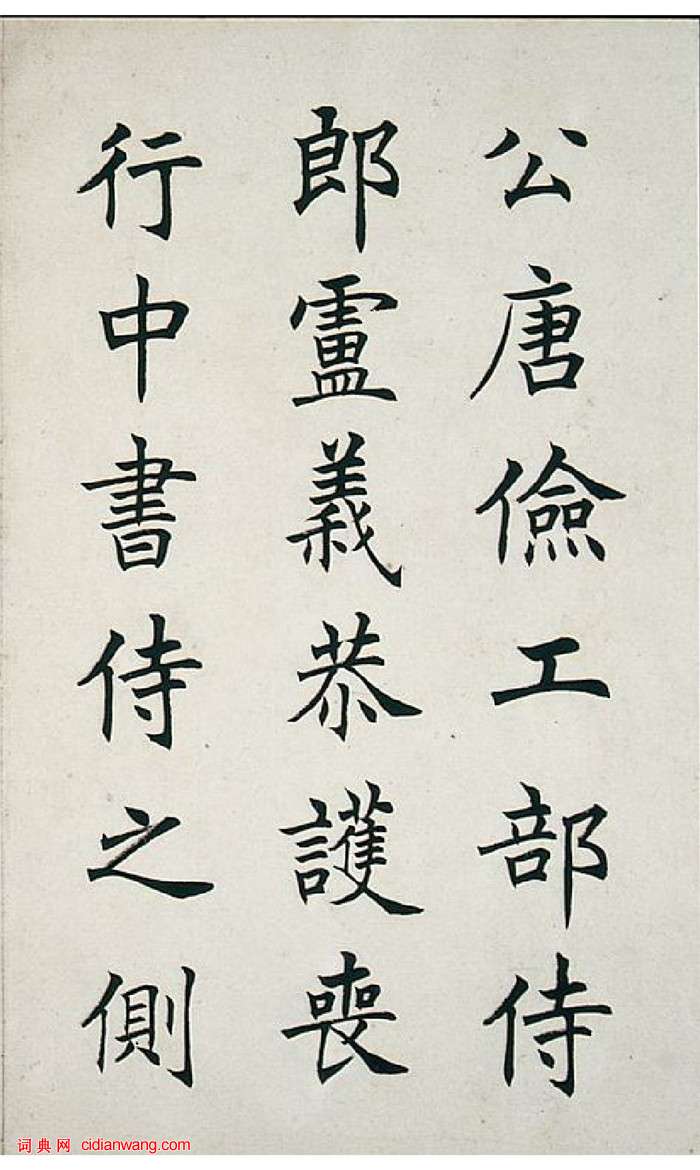 公唐儉工部侍
郎盧義恭護喪
行中書侍之側
词典网 cidianwang.com